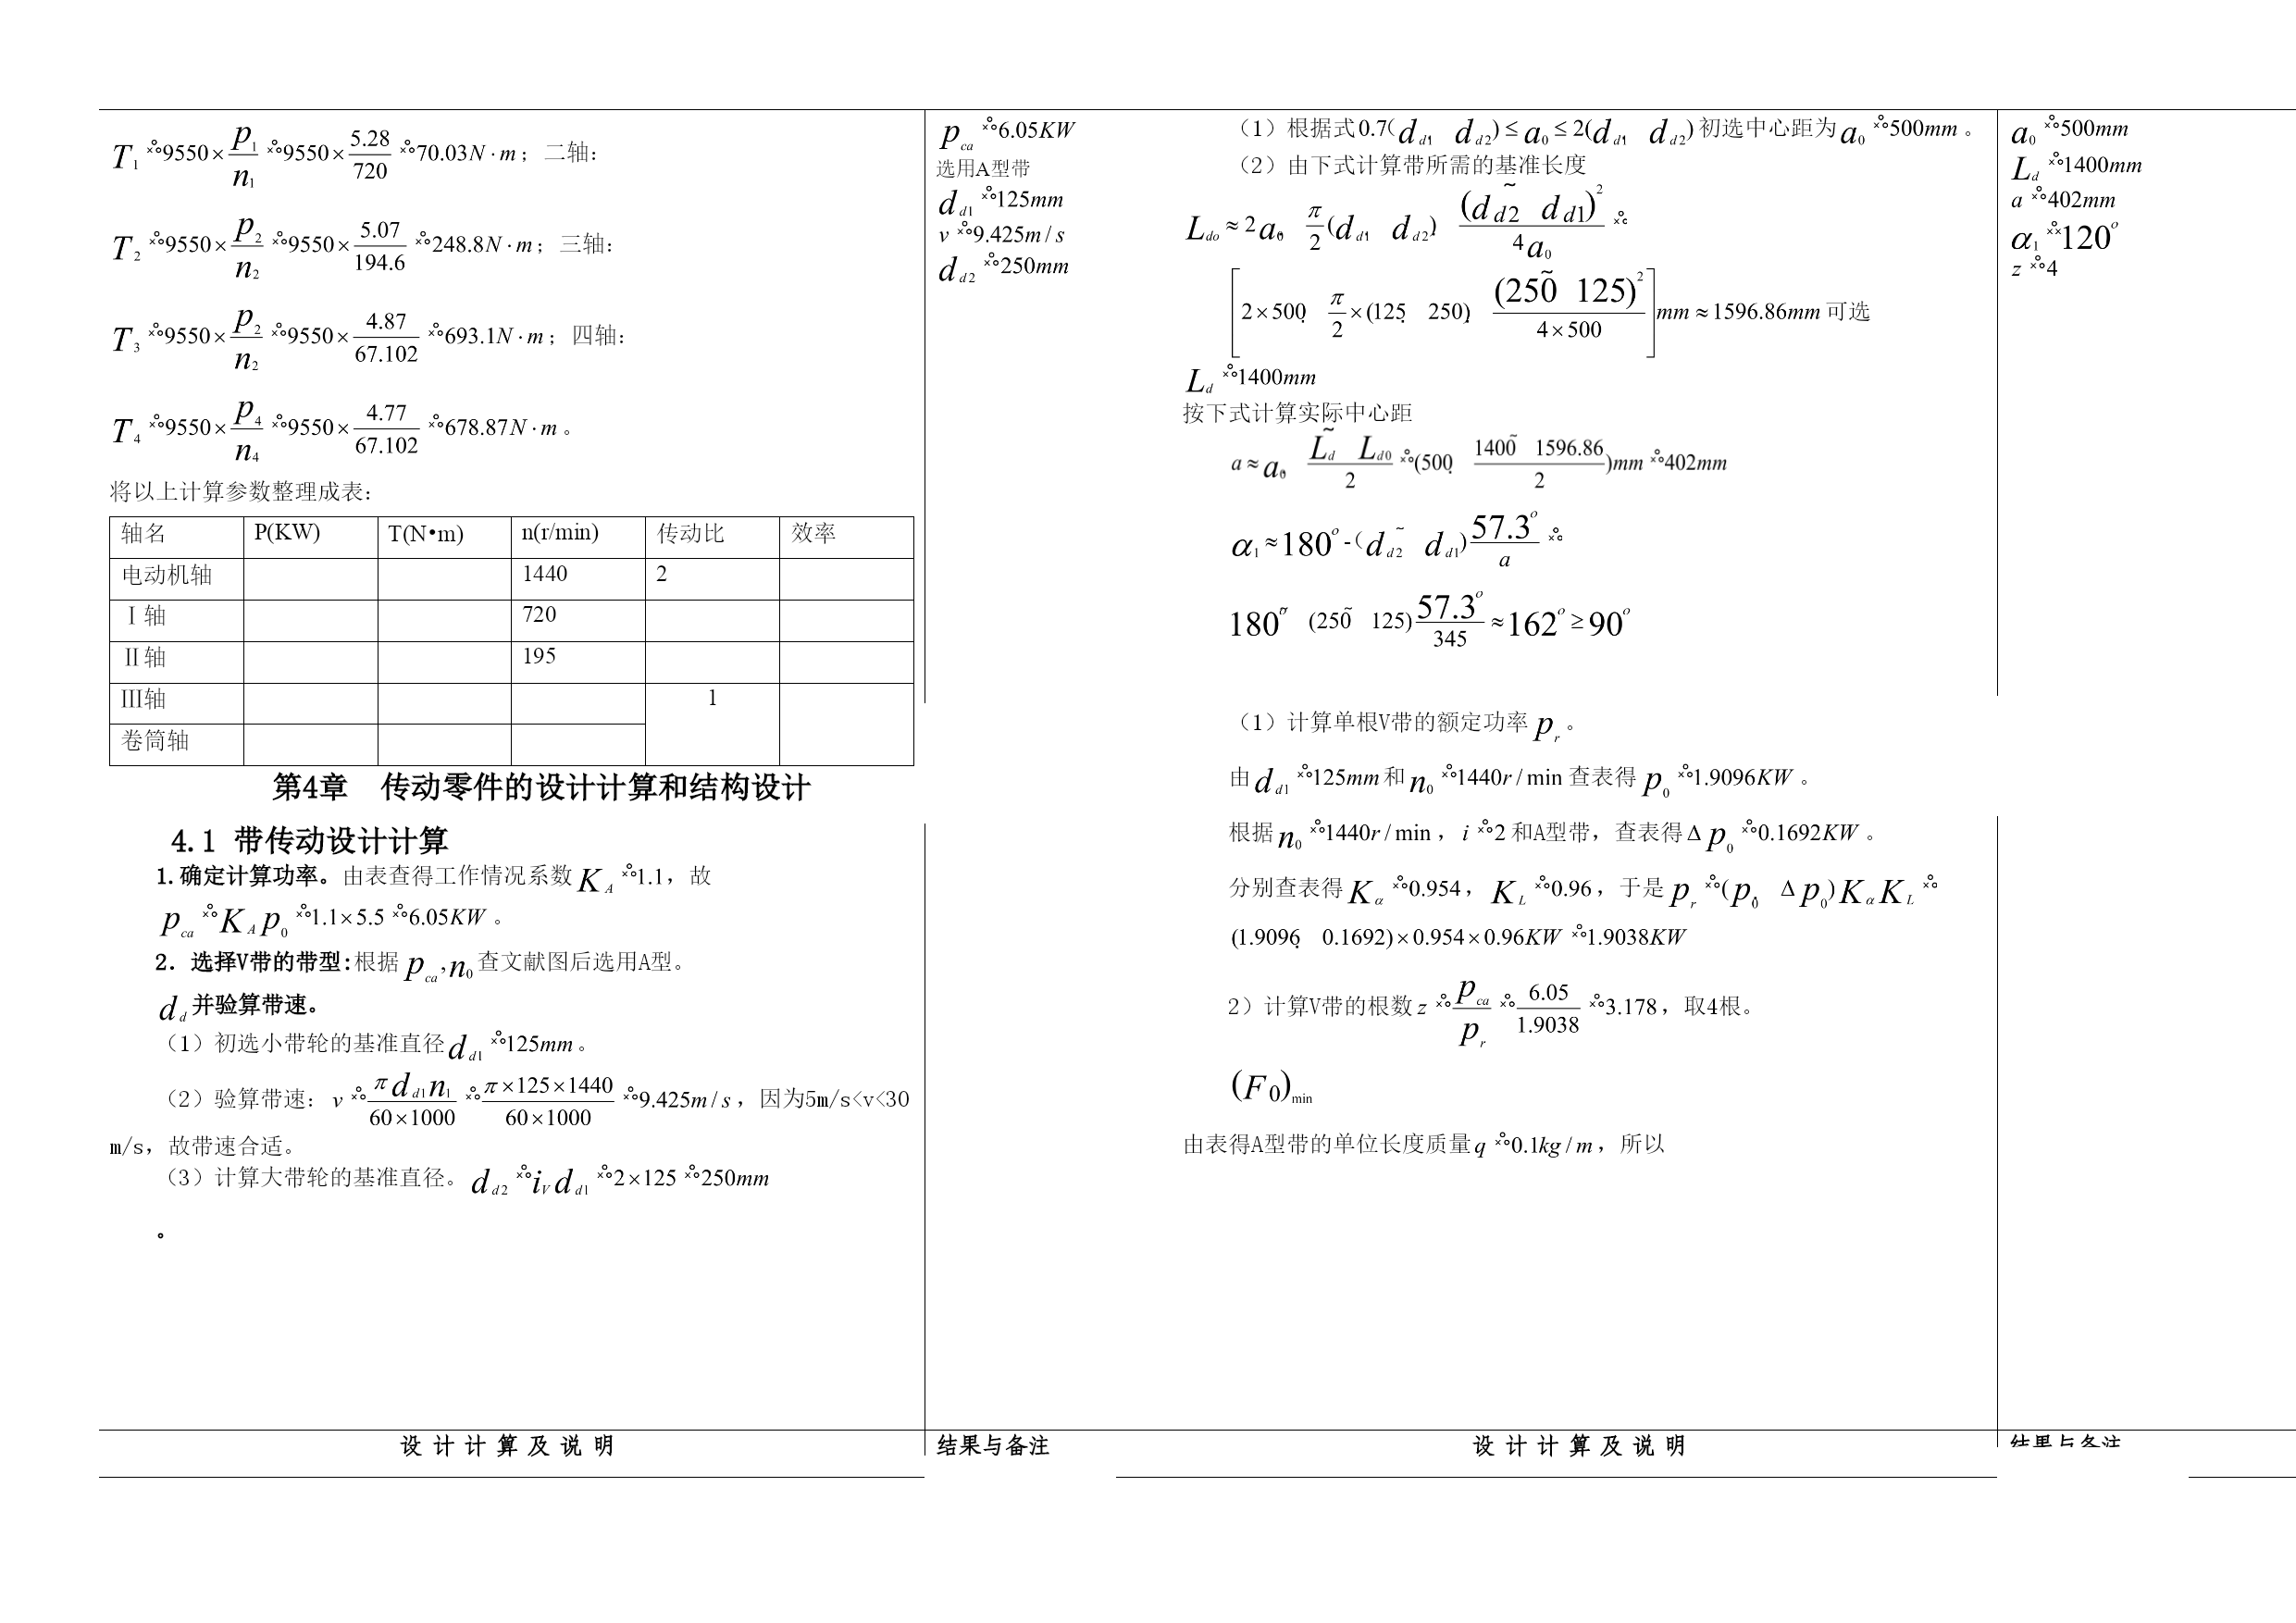 T₁=9550×p₁/n₁=9550×5.28/720=70.03N·m；二轴：
T₂=9550×p₂/n₂=9550×5.07/194.6=248.8N·m；三轴：
T₃=9550×p₂/n₂=9550×4.87/67.102=693.1N·m；四轴：
T₄=9550×p₄/n₄=9550×4.77/67.102=678.87N·m。
将以上计算参数整理成表：
轴名 P(KW) T(N•m) n(r/min) 传动比 效率
电动机轴 1440 2
Ⅰ轴 720
Ⅱ轴 195
Ⅲ轴 1
卷筒轴
第4章 传动零件的设计计算和结构设计
4.1 带传动设计计算
1.确定计算功率。由表查得工作情况系数K_A=1.1，故
p_ca=K_A p₀=1.1×5.5=6.05KW。
2. 选择V带的带型:根据p_ca,n₀查文献图后选用A型。
d_d并验算带速。
（1）初选小带轮的基准直径d_d1=125mm。
（2）验算带速：v=πd_d1n₁/60×1000=π×125×1440/60×1000=9.425m/s，因为5m/s<v<30
m/s，故带速合适。
（3）计算大带轮的基准直径。d_d2=i_V d_d1=2×125=250mm
。
设计计算及说明
p_ca=6.05KW
选用A型带
d_d1=125mm
v=9.425m/s
d_d2=250mm
结果与备注
（1）根据式0.7(d_d1 d_d2)≤a₀≤2(d_d1 d_d2)初选中心距为a₀=500mm。
（2）由下式计算带所需的基准长度
L_do≈2a₀ π/2(d_d1 d_d2) (d_d2~ d_d1)²/4a₀=
[2×500 π/2×(125 250) (250~ 125)²/4×500]mm≈1596.86mm可选
L_d=1400mm
按下式计算实际中心距
a≈a₀ L_d~ L_d0/2=(500 1400~ 1596.86/2)mm=402mm
α₁≈180°-(d_d2~ d_d1)57.3°/a=
180°~ (250~ 125)57.3°/345≈162°≥90°
（1）计算单根V带的额定功率p_r。
由d_d1=125mm和n₀=1440r/min查表得p₀=1.9096KW。
根据n₀=1440r/min，i=2和A型带，查表得Δp₀=0.1692KW。
分别查表得K_α=0.954，K_L=0.96，于是p_r=(p₀ Δp₀)K_αK_L=
(1.9096 0.1692)×0.954×0.96KW=1.9038KW
2）计算V带的根数z=p_ca/p_r=6.05/1.9038=3.178，取4根。
(F₀)min
由表得A型带的单位长度质量q=0.1kg/m，所以
设计计算及说明
a₀=500mm
L_d=1400mm
a=402mm
α₁=120°
z=4
结果与备注